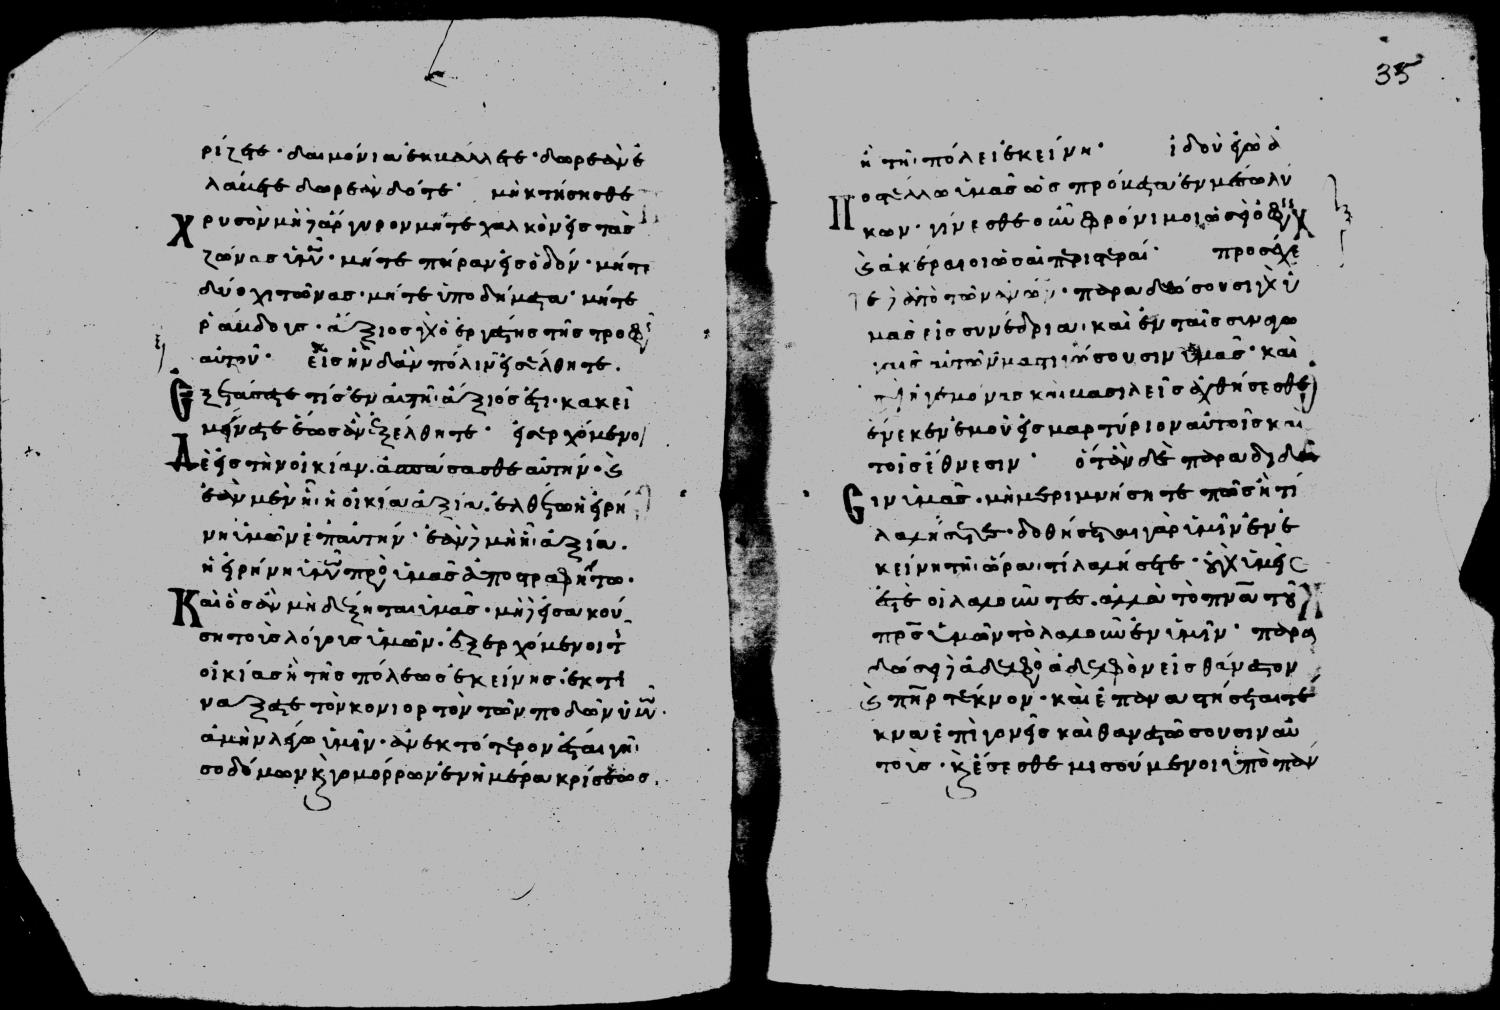 35
ρίζετε· δαιμόνια ἐκβάλλετε· δωρεὰν ἐ
λάβετε δωρεὰν δότε· μὴ κτήσησθε
χρυσὸν μὴ ἄργυρον μήτε χαλκὸν εἰς τὰς
ζώνας ὑμῶν· μήτε πήραν εἰς ὁδόν· μήτε
δύο χιτῶνας· μήτε ὑποδήματα· μήτε
ῥάβδους· ἄξιος γὰρ ὁ ἐργάτης τῆς τροφῆς
αὐτοῦ· εἰς ἣν δὰν πόλιν εἰσέλθητε·
ἐξετάσατε τίς ἐν αὐτῇ ἄξιός ἐστι· κἀκεῖ
μείνατε ἕως ἂν ἐξέλθητε· εἰσερχόμενοι
δὲ εἰς τὴν οἰκίαν· ἀσπάσασθε αὐτήν· καὶ
ἐὰν μὲν ᾖ ἡ οἰκία ἀξία· ἐλθέτω ἡ εἰρή
νη ὑμῶν ἐπ' αὐτήν· ἐὰν δὲ μὴ ᾖ ἀξία·
ἡ εἰρήνη ὑμῶν πρὸς ὑμᾶς ἀποστραφήτω·
Καὶ ὃς ἂν μὴ δέξηται ὑμᾶς· μὴ δὲ εἰσακού
ση τοὺς λόγους ὑμῶν· ἐξερχόμενοι τῆς
οἰκίας ἢ τῆς πόλεως ἐκείνης· ἐκτι
νάξατε τὸν κονιορτὸν τῶν ποδῶν ὑμῶν·
ἀμὴν λέγω ὑμῖν· ἀνεκτότερον ἔσται γῇ
σοδόμων καὶ γομόρρων ἐν ἡμέρα κρίσεως·
ἢ τῇ πόλει ἐκείνη· ἰδοὺ ἐγὼ ἀ
ποστέλλω ὑμᾶς ὡς πρόβατα ἐν μέσω λύ
κων· γίνεσθε οὖν φρόνιμοι ὡς οἱ ὄφεις
καὶ ἀκέραιοι ὡσαὶ περιστεραί· προσέχε
τε δὲ ἀπὸ τῶν ἀνων· παραδώσουσι γὰρ ὑ
μᾶς εἰς συνέδρια· καὶ ἐν ταῖς συναγω
γαῖς αὐτῶν μαστιγώσουσιν ὑμᾶς· καὶ
ἐπὶ ἡγεμόνας καὶ βασιλεῖς ἀχθήσεσθε
ἕνεκεν ἐμοῦ εἰς μαρτύριον αὐτοῖς καὶ
τοῖς ἔθνεσιν· ὅταν δὲ παραδιδῶ
σιν ὑμᾶς· μὴ μεριμνήσητε πῶς ἢ τί
λαλήσετε· δοθήσεται γὰρ ὑμῖν ἐν ἐ
κείνη τῇ ὥρα· τί λαλήσετε· οὐχ ὑμεῖς
ἐστε οἱ λαλοῦντες· ἀλλὰ τὸ πνα τοῦ
πρς ὑμῶν τὸ λαλοῦν ἐν ὑμῖν· παρα
δώσει δὲ ἀδελφὸς ἀδελφὸν εἰς θάνατον
καὶ πηρ τέκνον· καὶ ἐπαναστήσεται τέ
κνα ἐπὶ γονεῖς καὶ θανατώσουσιν αὐ
τούς· καὶ ἔσεσθε μισούμενοι ὑπὸ πάν